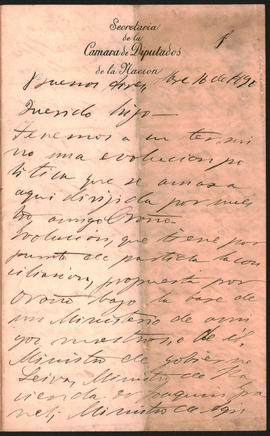 Secretaria
de la
Camara de Diputados
de la Nacion
Buenos Aires, 16 de 1890
Querido hijo
Tenemos a un termi
no una evolucion po
litica que se amasa
aqui dirijida por nues
tro amigo Oroño
Evolucion, que tiene por
punto de partida la con
ciliacion, propuesta por
Oroño bajo la base de
un Ministerio de ami
gos nuestros, a de él,
Ministro de gobierno
Leiva, Ministro de Ha
cienda,
Ministro de